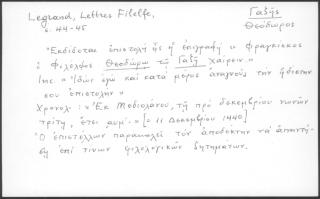 Legrand, Lettres Filelfe,
σ. 44-45
Γαζῆς
Θεόδωρος
"Ἐκδίδεται ἐπιστολή ἧς ἡ ἐπιγραφή «Φραγκίσκος
ὁ Φιλέλφος Θεοδώρῳ τῷ Γαζῇ χαίρειν.»
"Ἰδὼς ἐγὼ καὶ κατὰ μέρος ἀναγνοὺς τὴν ἡδίστην
σου ἐπιστολήν»
Χρονολ: «Ἐκ Μεδιολάνου, τῇ πρό δεκεμβρίου νωνῶν
τρίτῃ, ἔτει αυμ΄.» [= 11 Δεκεμβρίου 1440]
Ὁ ἐπιστέλλων παρακαλεῖ τόν ἀποδέκτην νά ἀπαντή-
σῃ ἐπί τινων φιλολογικῶν ζητημάτων.